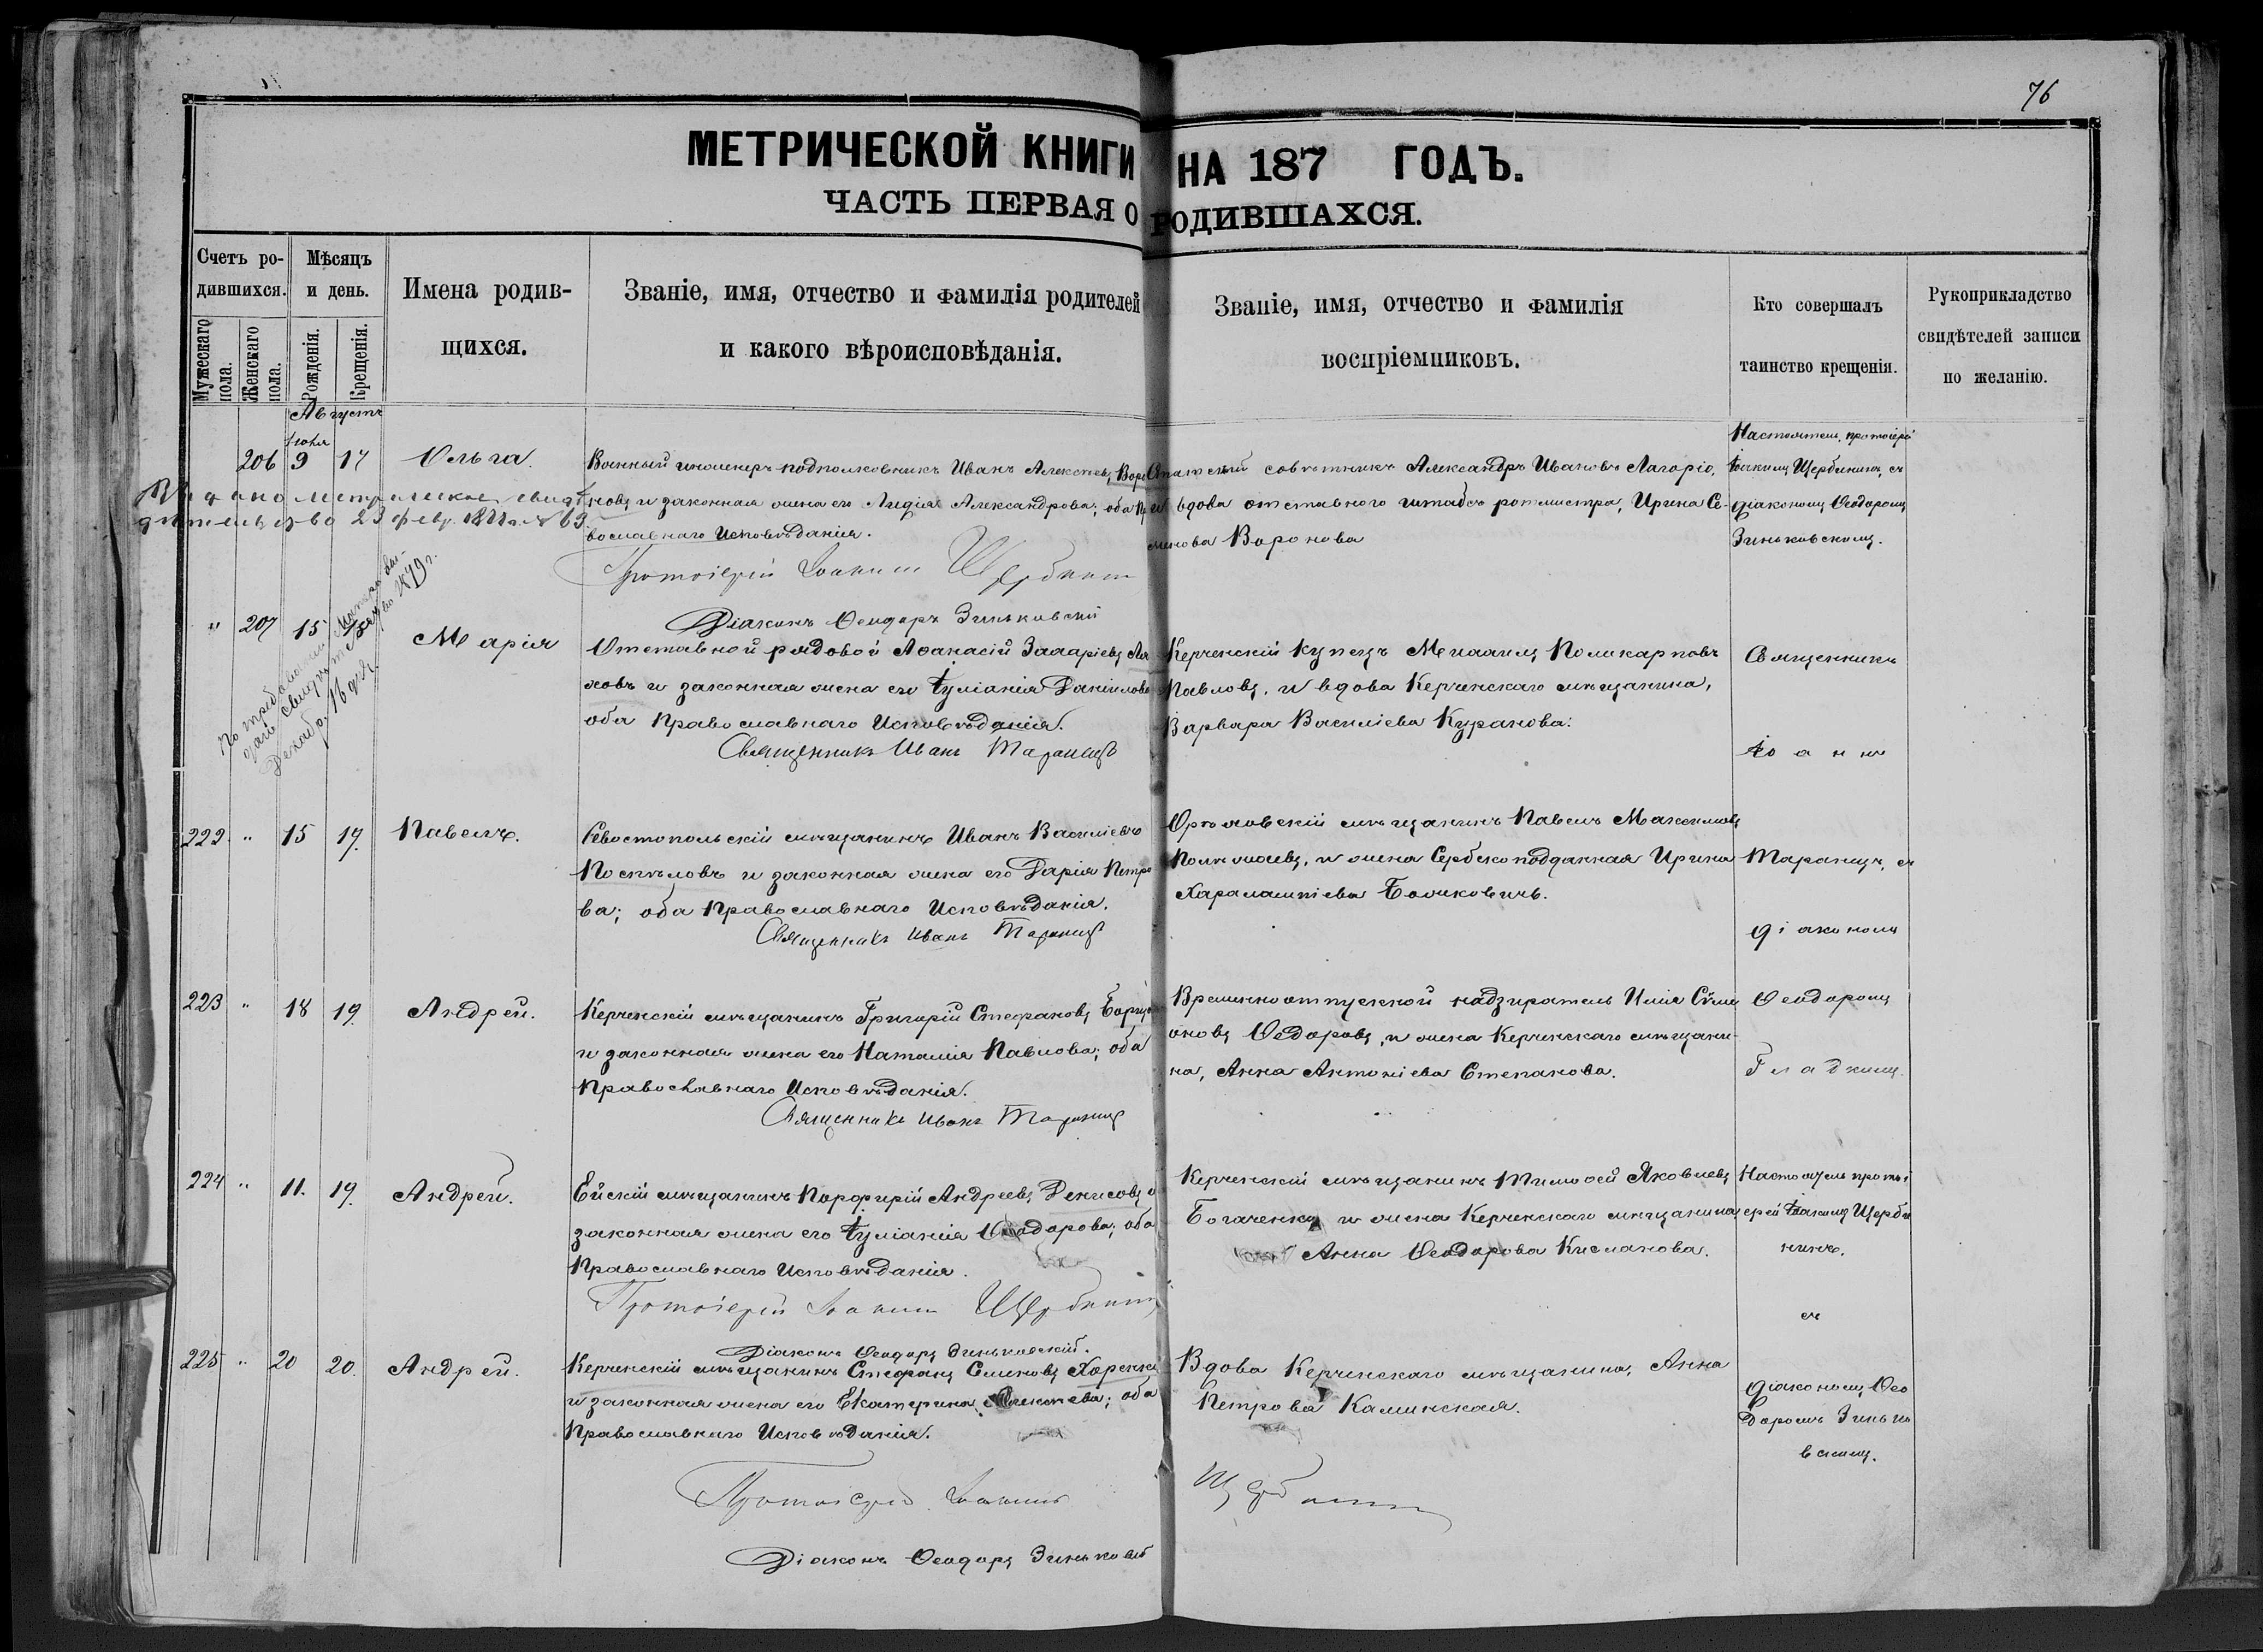 76
МЕТРИЧЕСКОЙ КНИГИ НА 187 ГОДЪ.
ЧАСТЬ ПЕРВАЯ О РОДИВШАХСЯ.
Счетъ ро-
дившихся.
Мужескаго пола.
Женскаго пола.
Мѣсяцъ
и день.
Рожденія.
Крещенія.
Имена родив-
щихся.
Званіе, имя, отчество и фамилія родителей
и какого вѣроисповѣданія.
Званіе, имя, отчество и фамилія
воспріемниковъ.
Кто совершалъ
таинство крещенія.
Рукоприкладство
свидѣтелей записи
по желанію.
Августъ
206 9 17 Ольга.
Военный инженеръ подполковникъ Иванъ Алексѣевъ Воро
новъ и законная жена его Лидія Александрова; оба Пра
вославнаго Исповѣданія.
Протоіерей Іоакимъ Щербининъ
Діаконъ Ѳеодоръ Зиньковскій
Статскій совѣтникъ Александръ Ивановъ Лагоріо,
и вдова отставного штабсъ ротмистра, Ирина Се-
менова Воронова
Настоятель протоіерей
Іоакимъ Щербининъ, съ
діакономъ Ѳеодоромъ
Зиньковскимъ.
Выдано метрическое свидѣ
тельство 23 февр. № 63.
" 207 15 Марія
По требованію
Декабр. 16 дня
1879 г.
Отставной рядовой Аѳанасій Захаріевъ Ля
ховъ и законная жена его Іуліанія Даніилова
оба Православнаго Исповѣданія.
Священникъ Иванъ Таранецъ
Керченскій купецъ Михаилъ Поликарповъ
Павловъ, и вдова Керченскаго мѣщанина,
Варвара Василіева Куракова.
Священникъ
Іоаннъ
222 " 15 17 Павелъ.
Севастопольскій мѣщанинъ Иванъ Василіевъ
Поспѣловъ и законная жена его Дарія Петро
ва; оба Православнаго Исповѣданія.
Священникъ Иванъ Таранецъ
Орѣховскій мѣщанинъ Павелъ Максимовъ
и жена Сербско подданная Ирина
Харалампіева Божковичъ.
Таранецъ, съ
діакономъ
223 " 18 19 Андрей.
Керченскій мѣщанинъ Григорій Стефановъ
и законная жена его Наталія Павлова; оба
Православнаго Исповѣданія.
Священникъ Иванъ Таранецъ
Временноотпускной надзиратель Илія Сѵме
оновъ Ѳедоровъ, и жена Керченскаго мѣщани-
на, Анна Антоніева Степанова.
Ѳеодоромъ
Гладкимъ.
224 " 11. 19 Андрей.
Ейскій мѣщанинъ Порфирій Андреевъ Денисовъ и
законная жена его Іуліанія Ѳеодорова; оба
Православнаго Исповѣданія.
Протоіерей Іоакимъ Щербининъ
Діаконъ Ѳеодоръ Зиньковскій.
Керченскій мѣщанинъ Тимоѳей Яковлевъ
Богаченко и жена Керченскаго мѣщанина
Анна Ѳеодорова Кисманова.
Настоятель протоі
ерей Іоакимъ Щерби
нинъ.
съ
225 " 20 20. Андрей.
Керченскій мѣщанинъ Стефанъ Семеновъ Харченко
и законная жена его Екатерина Алексѣева; оба
Православнаго Исповѣданія.
Протоіерей Іоакимъ Щербининъ
Діаконъ Ѳеодоръ Зиньковскій
Вдова Керченскаго мѣщанина, Анна
Петрова Каминская.
діакономъ Ѳео
доромъ Зинько
вскимъ.